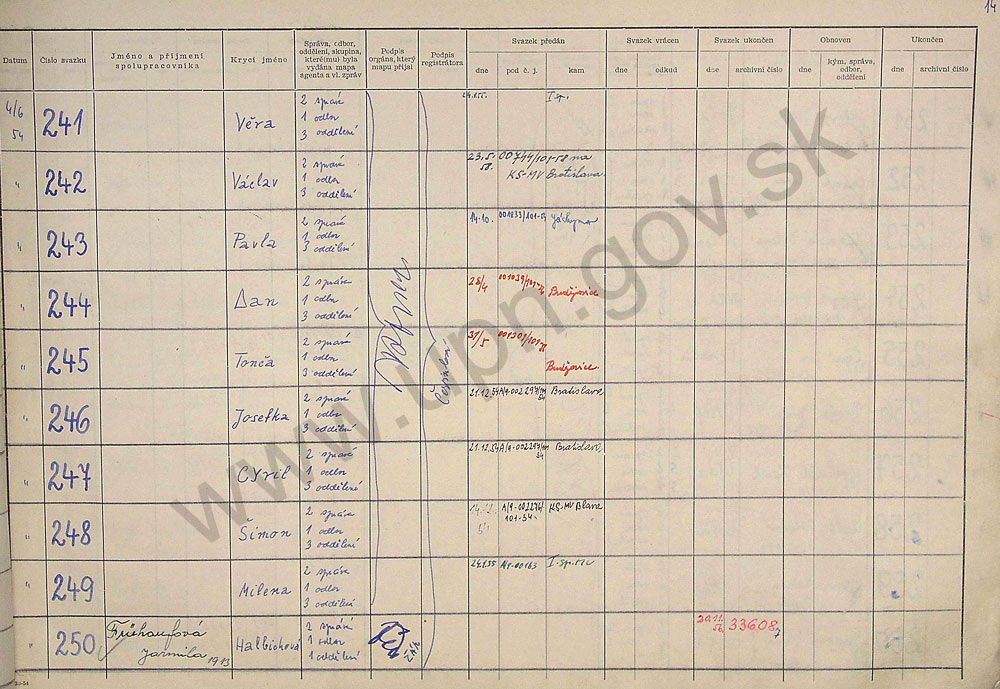 14
Datum
Číslo svazku
Jméno a příjmení
spolupracovníka
Krycí jméno
Správa, odbor,
oddělení, skupina,
které(mu) byla
vydána mapa
agenta a vl. zpráv
Podpis
orgána, který
mapu přijal
Podpis
registrátora
Svazek předán
dne
pod č. j.
kam
Svazek vrácen
dne
odkud
Svazek ukončen
dne
archivní číslo
Obnoven
dne
kým, správa,
odbor,
oddělení
Ukončen
dne
archivní číslo
4/6
54
241
Věra
2 správa
1 odbor
3 oddělení
I sp.
" 242
Václav
2 správa
1 odbor
3 oddělení
23.5. 00744/101-58 na
58. KS-MV Bratislava
" 243
Pavla
2 správa
1 odbor
3 oddělení
14.10. Jáchymov
" 244
Dan
2 správa
1 odbor
3 oddělení
28/4 Budějovice
" 245
Tonča
2 správa
1 odbor
3 oddělení
31/5
Budějovice
" 246
Josefka
2 správa
1 odbor
3 oddělení
21.12.54 Bratislava
" 247
Cyril
2 správa
1 odbor
3 oddělení
21.12.54 Bratislava
" 248
Šimon
2 správa
1 odbor
3 oddělení
14.12. KS-MV Blava
54 101-54
" 249
Milena
2 správa
1 odbor
3 oddělení
" 250
Frühaufová
Jarmila 1913
Halbichová
2 správa
1 odbor
1 oddělení
30.11.
56
33608
www.upn.gov.sk